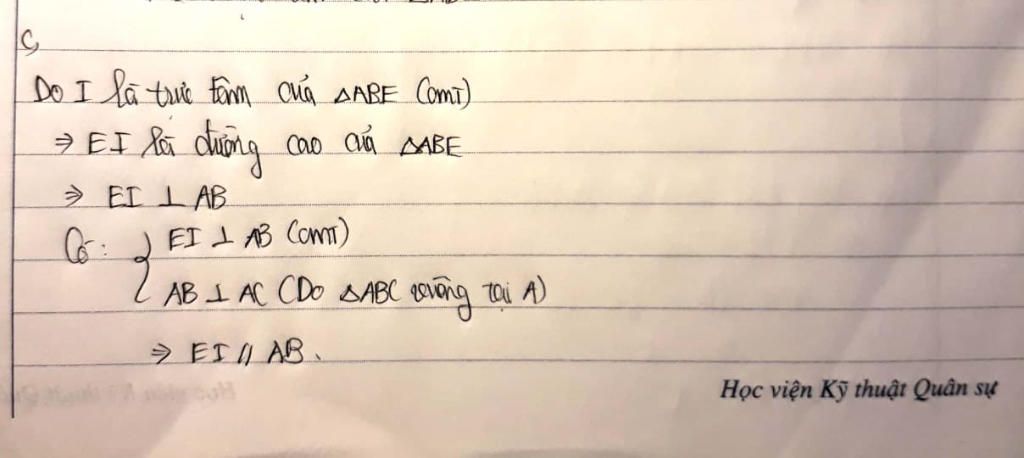 c,
Do I là trực tâm của △ABE (cmt)
⇒ EI là đường cao của △ABE
⇒ EI ⊥ AB
Có: { EI ⊥ AB (cmt)
AB ⊥ AC (Do △ABC vuông tại A)
⇒ EI // AB.
Học viện Kỹ thuật Quân sự